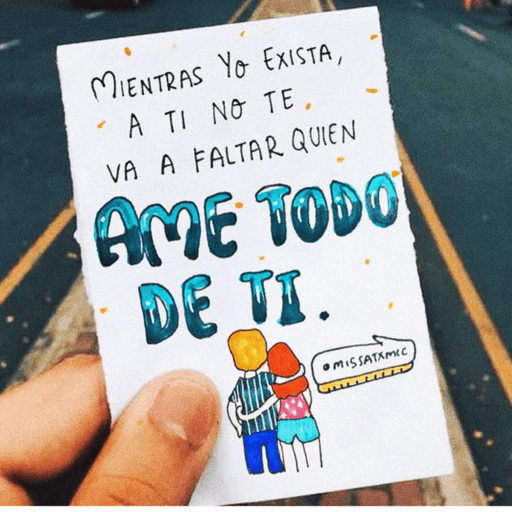 MIENTRAS YO EXISTA,
A TI NO TE
VA A FALTAR QUIEN
AME TODO
DE TI.
@MISSATXMCC